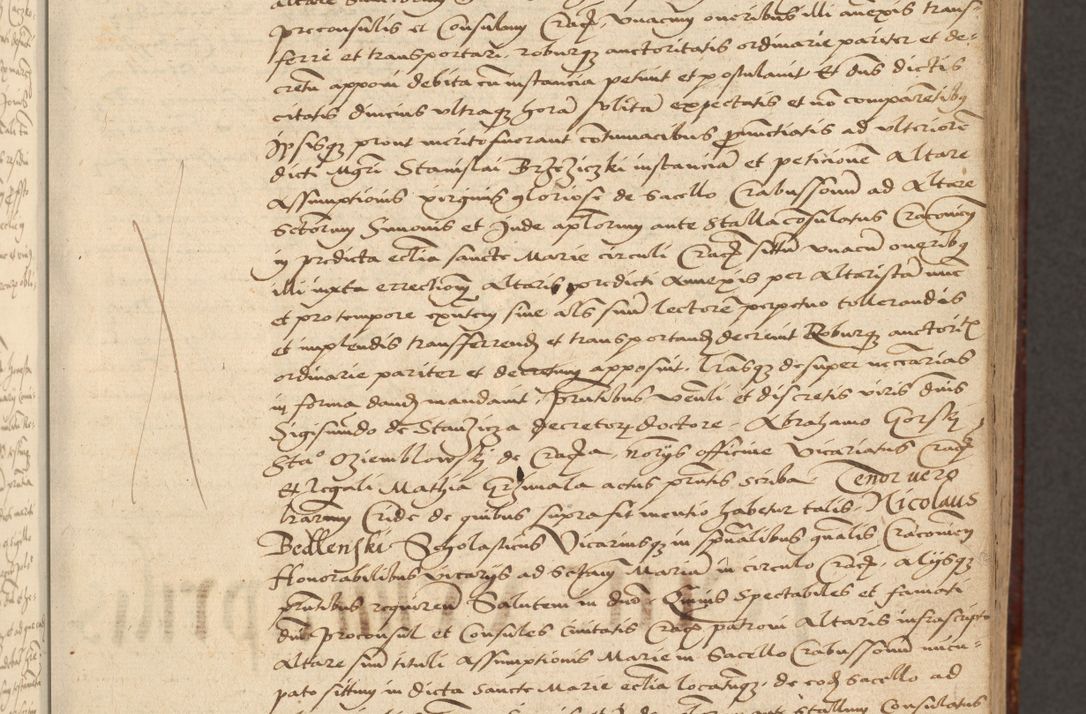 preconsulis et Consulum Crac. vnacum oneribus illi anexis trans-
ferri et transportari, roburq auctoritatis ordinarie pariter et de-
cretu apponi debita cu instancia petiit et postulauit Et dns dictis
citatis diucius vltraq hora solita expectatis et no comparetibq
ipsisq prout merito fuerant contumacibus pronuctiatis ad vlteriore
dicti Mgri Stanislai Brzeziczki instancia et peticione Altare
Assumptionis virginis gloriose de Sacello Crabussoum ad Altare
Sctorum Simonis et Jude aplorum ante Stalla cosulatus Cracouien
in predicta ecclia sancte Marie circuli Crac. situ vnacu oneribq
illi iuxta errectionem Altaris predicti Annexis per Altarista nuc
et pro tempore exnten siue als suu lectore perpetuo tollerandis
et implendis transfferrend et transportand decreuit Roburq auctorit
ordinarie pariter et decretum apposuit. lrasq desuper neccarias
in forma dand mandauit. Prntibus venli et discretis viris dnis
Sigismundo de Stanzicza decretor doctore, Abrahamo Gorskj
Sta° Oziemblowskj de Cracia, norijs officiue vicariatus Crac
Et legali Mathia Grzimala actus prntis scriba Tenor vero
lrarum Cride de quibus supra fit mentio habetur talis. Nicolaus
Bedlenski Scholasticus Vicariusq in spualibus gnalis Cracouien
Honorabilibus vicarijs ad Sctam Maria in circulo Crac. Alijsq
prntibus requiren Salutem in dno. Quius Spectabiles et famati
dni Proconsul et Consules Ciuitatis Crac patroni Altaris infrascripti
Altare sun tituli Assumptionis Marie in Sacello Crabussoum nuncu-
pato sittum in dicta Sancte Marie ecclia locatuq. de eod Sacello ad
ante Stallum Consulatus